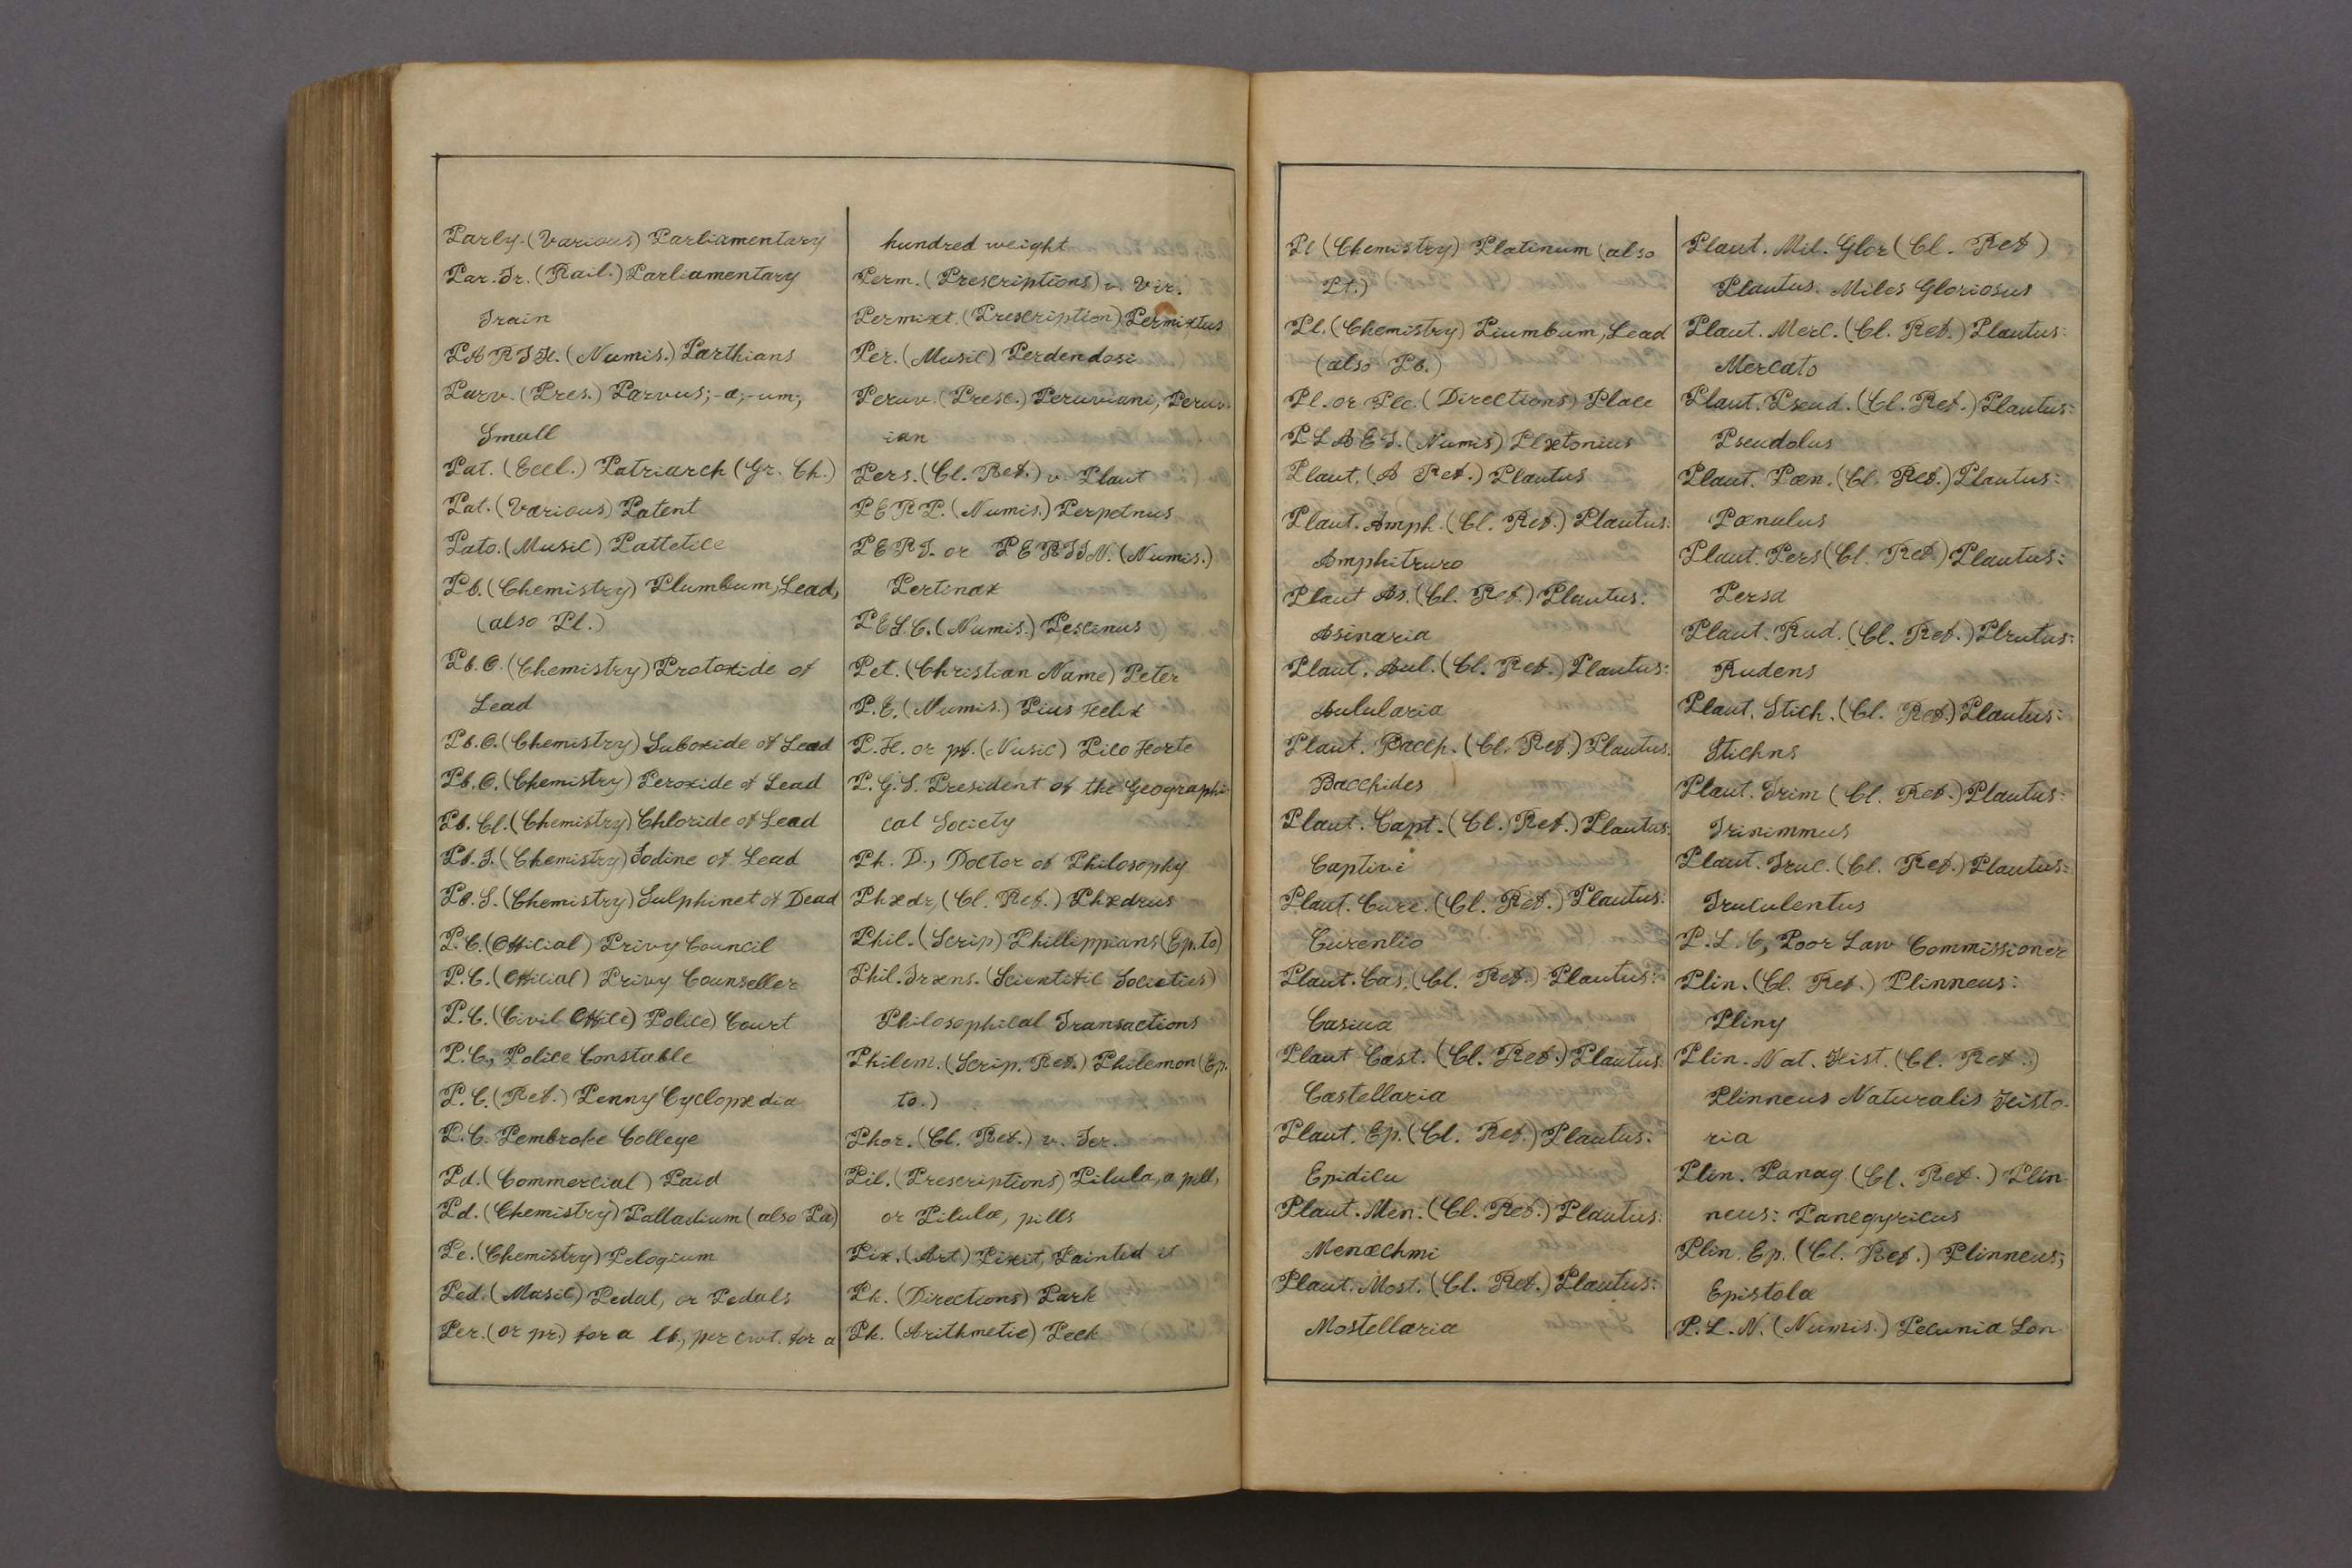 Parly. (Various) Parliamentary
Par. Tr. (Rail.) Parliamentary
Train
PARTH. (Numis.) Parthians
Parv. (Pres.) Parvus; -a; -um;
Small
Pat. (Eccl.) Patriarch (Gr. Ch.)
Pat. (Various) Patent
Pato. (Music) Pattetice
Pb. (Chemistry) Plumbum, Lead,
(also Pl.)
Pb. O. (Chemistry) Protoxide of
Lead
Pb. O. (Chemistry) Suboxide of Lead
Pb. O. (Chemistry) Peroxide of Lead
Pb. Cl. (Chemistry) Chloride of Lead
Pb. I. (Chemistry) Iodine of Lead
Pb. S. (Chemistry) Sulphinet of Dead
P. C. (Official) Privy Council
P. C. (Official) Privy Counseller
P. C. (Civil Office) Police) Court
P. C., Police Constable
P. C. (Ref.) Penny Cyclopædia
P. C. Pembroke College
Pd. (Commercial) Paid
Pd. (Chemistry) Palladium (also Pa)
Pe. (Chemistry) Pelogium
Ped. (Music) Pedal, or Pedals
Per. (or pr.) for a lb, per cwt. for a
hundred weight
Perm. (Prescriptions) v. Vir.
Permixt. (Prescription) Permixtus
Per. (Music) Perdendosi
Peruv. (Presc.) Peruviani, Peruv-
ian
Pers. (Cl. Ref.) v. Plaut
PERP. (Numis.) Perpetnus
PERT. or PERTIN. (Numis.)
Pertinax
PESC. (Numis.) Pescinus
Pet. (Christian Name) Peter
P. E. (Numis.) Pius Felix
P. F. or pf. (Nusic) Pico Forte
P. G. S. President of the Geographi-
cal Society
Ph. D., Doctor of Philosophy
Phædr, (Cl. Ref.) Phædrus
Phil. (Scrip) Phillippians (Ep. to)
Phil. Trans. (Scientific Societies)
Philosophical Transactions
Philem. (Scrip. Ref.) Philemon (Ep.
to.)
Phor. (Cl. Ref.) v. Ter.
Pil. (Prescriptions) Pilula, a pill,
or Pilulæ, pills
Pix. (Art) Pixit, Painted it
Pk. (Directions) Park
Pk. (Arithmetic) Peck
Pl (Chemistry) Platinum (also
Pt.)
Pl. (Chemistry) Piumbum, Lead
(also Pb.)
Pl. or Plc. (Directions) Place
PLAET. (Numis) Plætonius
Plaut. (A Ref.) Plautus
Plaut. Amph. (Cl. Ref.) Plautus:
Amphitruro
Plaut As. (Cl. Ref.) Plautus:
Asinaria
Plaut. Aul. (Cl. Ref.) Plautus:
Aulularia
Plaut. Bacch. (Cl. Ref.) Plautus:
Bacchides
Plaut. Capt. (Cl. Ref.) Plautus:
Captivi
Plaut. Curc. (Cl. Ref.) Plautus:
Curenlio
Plaut. Cas. (Cl. Ref.) Plautus:
Casiua
Plaut Cast. (Cl. Ref.) Plautus:
Castellaria
Plaut. Ep. (Cl. Ref.) Plautus:
Epidicu
Plaut. Men. (Cl. Ref.) Plautus:
Menæchmi
Plaut. Most. (Cl. Ref.) Plautus:
Mostellaria
Plaut. Mil. Glor (Cl. Ref)
Plautus. Miles Gloriosus
Plaut. Merc. (Cl. Ref.) Plautus:
Mercato
Plaut. Pseud. (Cl. Ref.) Plautus:
Pseudolus
Plaut. Pœn. (Cl. Ref.) Plautus:
Pœnulus
Plaut. Pers (Cl. Ref.) Plautus:
Persa
Plaut. Rud. (Cl. Ref.) Plrutus:
Rudens
Plaut. Stich. (Cl. Ref.) Plautus:
Stichns
Plaut. Trim (Cl. Ref.) Plautus:
Trinimmus
Plaut. Truc. (Cl. Ref.) Plautus:
Truculentus
P. L. C, Poor Law Commissioner
Plin. (Cl. Ref.) Plinneus:
Pliny
Plin. Nat. Hist. (Cl. Ref.)
Plinneus Naturalis Histo-
ria
Plin. Panag (Cl. Ref.) Plin-
neus: Panegyricus
Plin. Ep. (Cl. Ref.) Plinneus;
Epistolæ
P. L. N. (Numis.) Pecunia Lon-